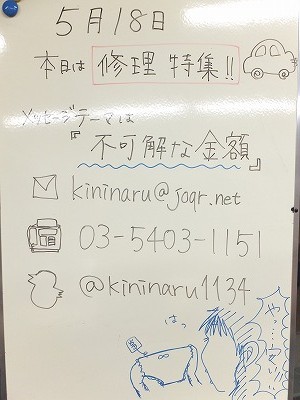 5月18日
本日は 修理 特集!!
メッセージテーマは
『不可解な金額』
kininaru@joqr.net
03-5403-1151
@kininaru1134
はっ